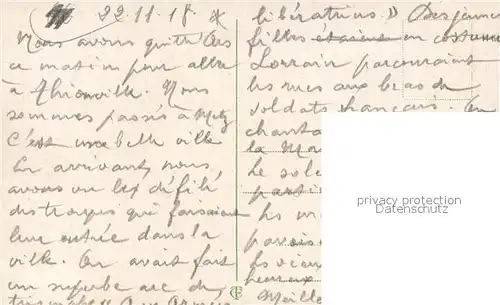 22.11.18
Nous avons quitté Ars
ce matin pour aller
à Thionville. Nous
sommes passés à Metz
C'est une belle ville
En arrivant, nous
avons vu le défilé
des troupes qui faisaient
leur entrée dans la
ville. On avait fait
un superbe arc de
libératrice.» Des jeunes
filles étaient en costume
Lorrain parcouraient
les rues aux bras de
soldats français. On
chanta
la Ma
Le sole
parti
les
pavois
les vieux
heureux
Meille
privacy protection
Datenschutz